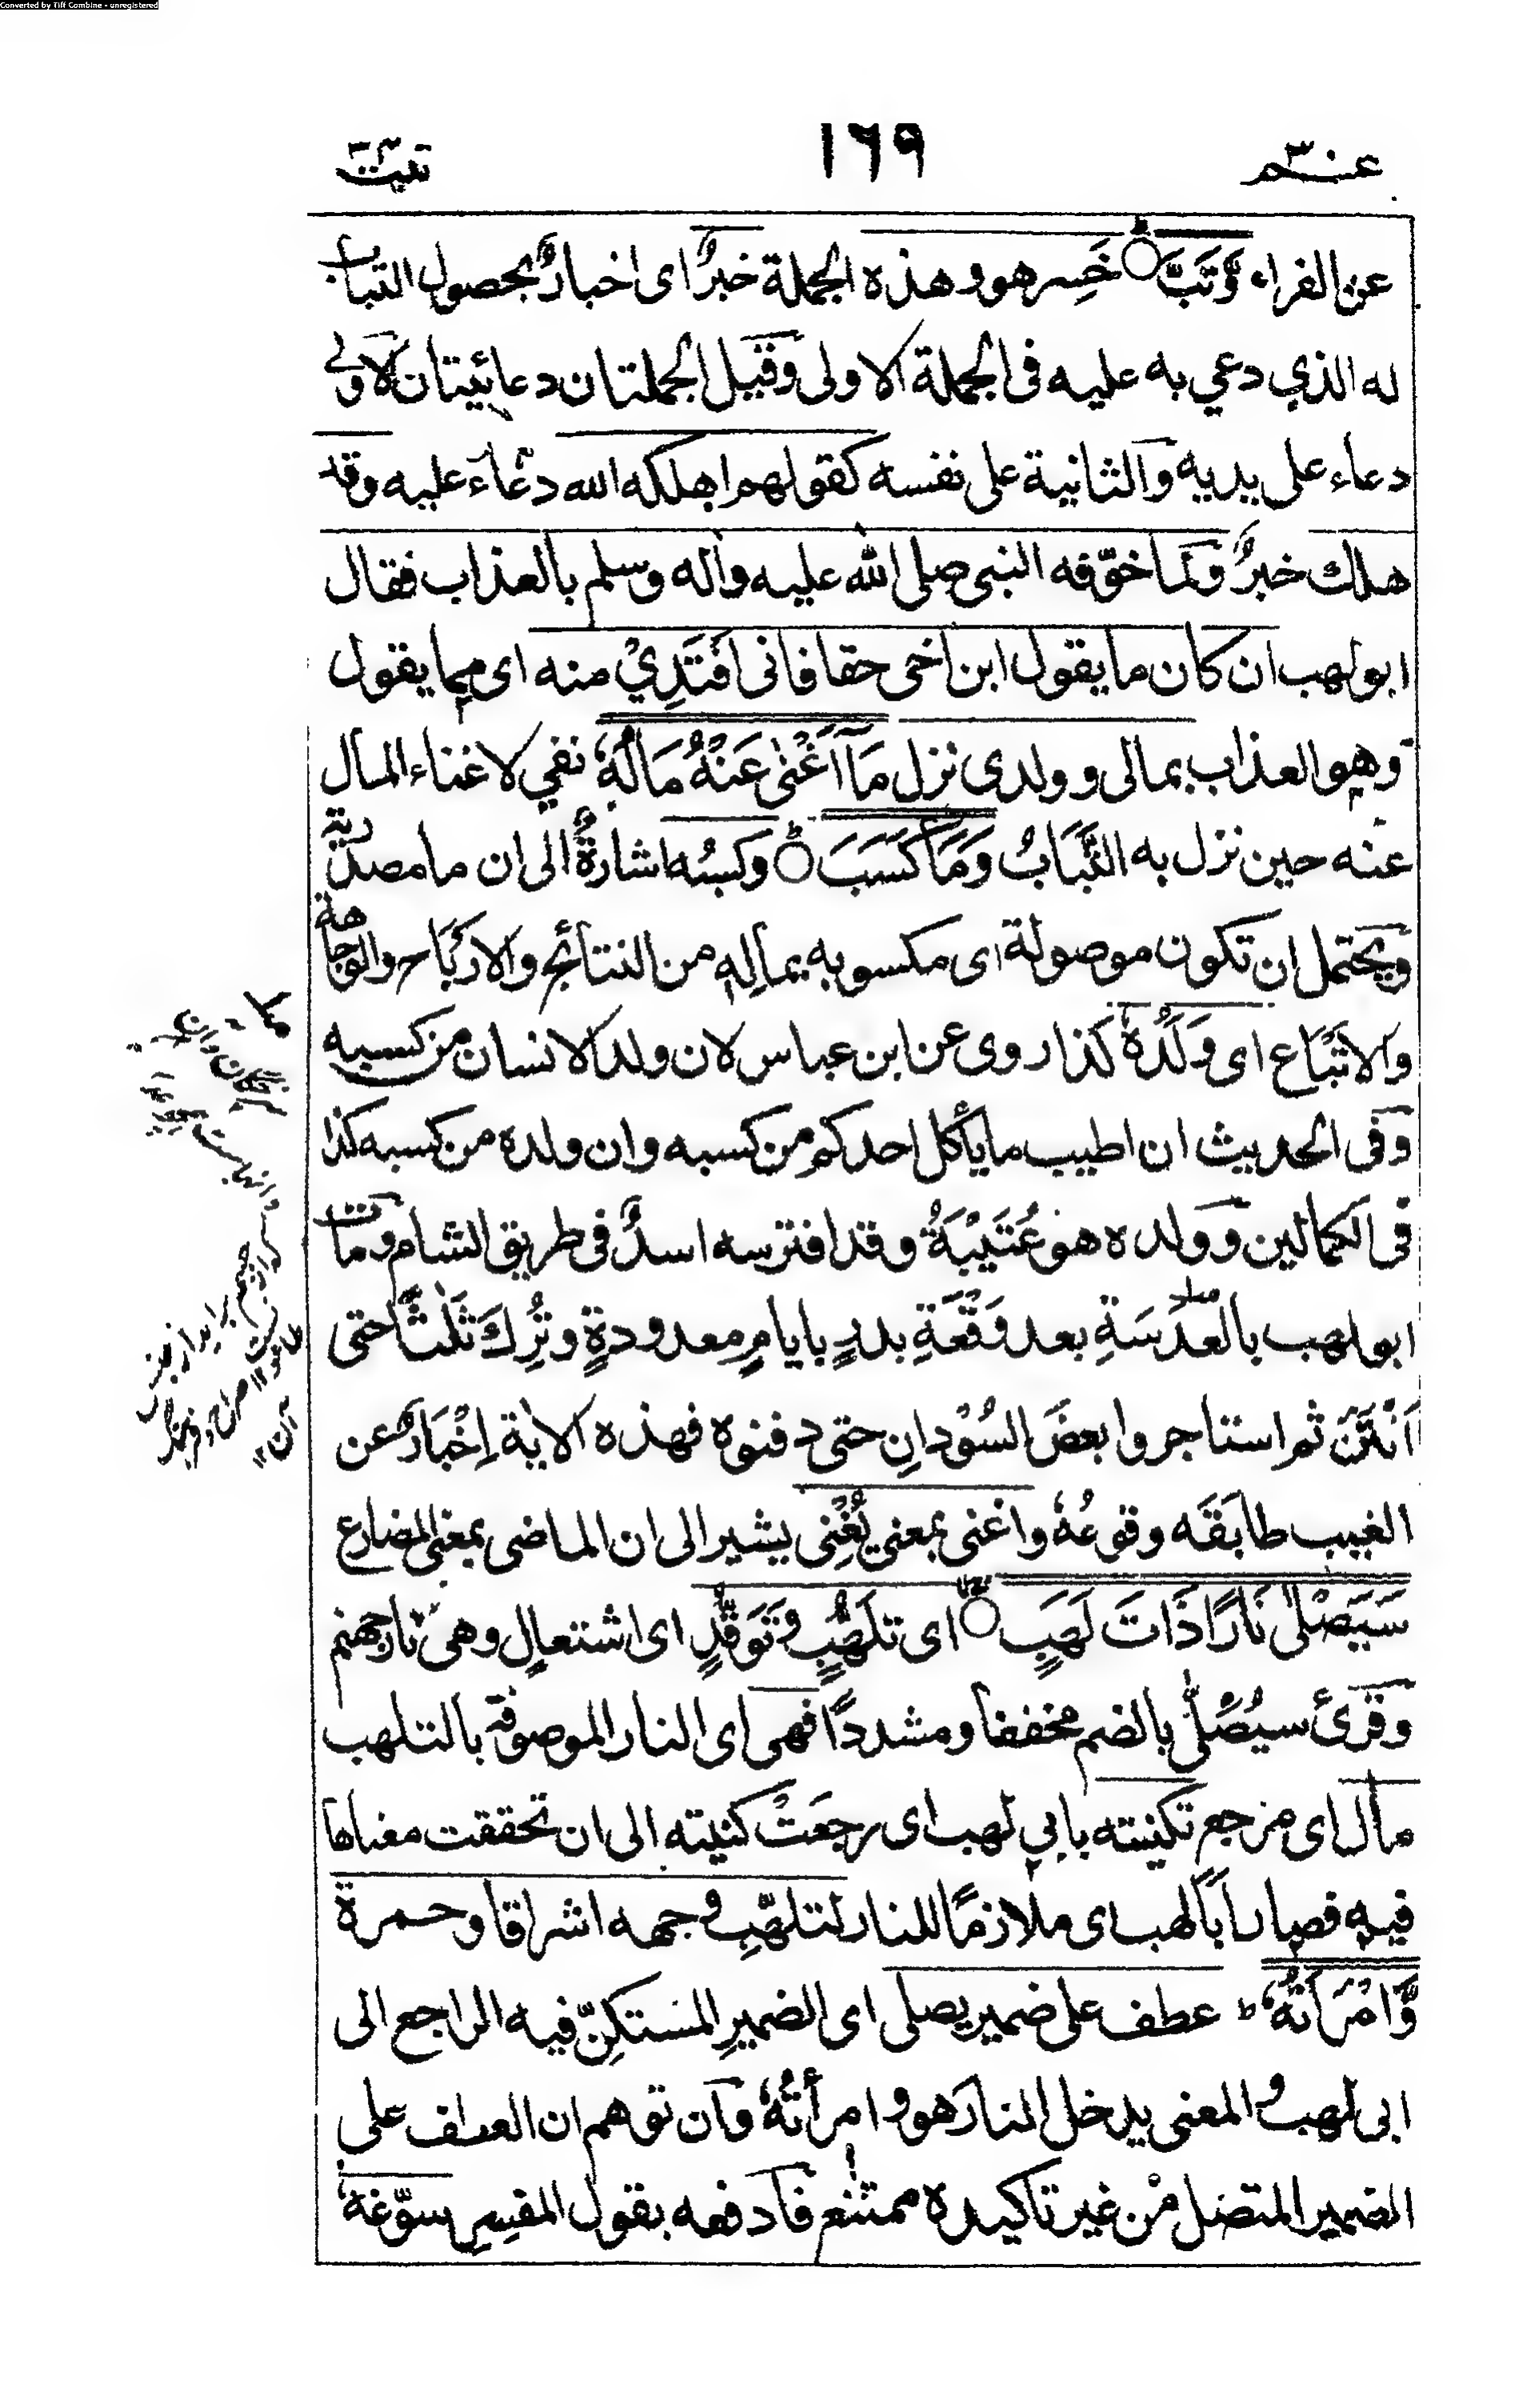 Converted by Tiff Combine - unregistered
عم ٣٠
١٦٩
تبت
عن الفراء وَّتَبَّ ۞ خَسِر هو وهذه الجملة خبرٌ اى اخبارٌ بحصول التباب
له الذي دعي به عليه فى الجملة الاولى وقيل الجملتان دعائيتان الاولى
دعاء على يديه والثانية على نفسه كقولهم اهلكه الله دعاء عليه وقد
هلك خبرٌ ولما خوّفه النبى صلى الله عليه واٰله وسلم بالعذاب فقال
ابو لهب ان كان ما يقول ابن اخى حقا فانى افتَدِيْ منه اى مما يقول
وهو العذاب بمالى وولدى نزل مَآ اَغْنٰى عَنْهُ مَالُهٗ نفي لاغناء المال
عنه حين نزل به التَّبَابُ وَمَا كَسَبَ ۞ وكسبُه اشارةٌ الى ان ما مصدرية
ويحتمل ان تكون موصولة اى مكسوبه بمالِهٖ من النتائج والارباح والوجاهة
والاتْبَاع اى وَلَدُهٗ كذا روى عن ابن عباس لان ولد الانسان من كسبه
وفى الحديث ان اطيب ما يأكل احدكم من كسبه وان ولده من كسبه كذا
فى الكمالين وولده هو عُتَيْبَةُ وقد افترسه اسدٌ فى طريق الشام ومات
ابو لهب بالعَدَسَةِ بعد وَقْعَةِ بدرٍ بايامٍ معدودةٍ وتُرِكَ ثَلٰثًا حتى
اَنْتَنَ ثم استاجروا بعضَ السُوْدانِ حتى دفنوه فهذه الاٰية اِخْبَارٌ عن
الغيب طابَقَه وقوعُهٗ واغنى بمعنى يُغْنِى يشير الى ان الماضى بمعنى المضارع
سَيَصْلٰى نَارًا ذَاتَ لَهَبٍ ۞ اى تلَهُّبٍ وتَوَقُّدٍ اى اشتعالٍ وهى نار جهنم
وقرئ سيُصْلٰى بالضم مخففا ومشددًا فهى اى النار الموصوفة بالتلهب
مآل اى مرجع تكنيته بابي لهب اى رجعَتْ كنيته الى ان تحققت معناها
فيه فصار اَبا لهب اى ملازمًا للنار لتلهّبِ وجهه اشراقا وحمرة
وَّامْرَاَتُهٗ ؕ عطف على ضمير يصلى اى الضميرِ المستكِنّ فيه الراجع الى
ابى لهب والمعنى يدخل النار هو وامرأتُهٗ وان توهم ان العطف على
الضمير المتصل من غير تاكيده ممتنع فادفعه بقول المفسِرِ سوّغه